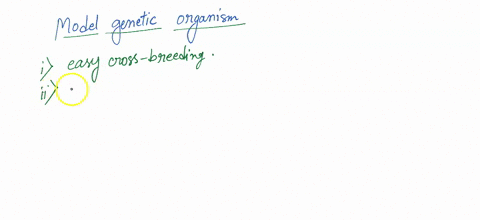 Model genetic organism
i) easy cross-breeding.
ii)